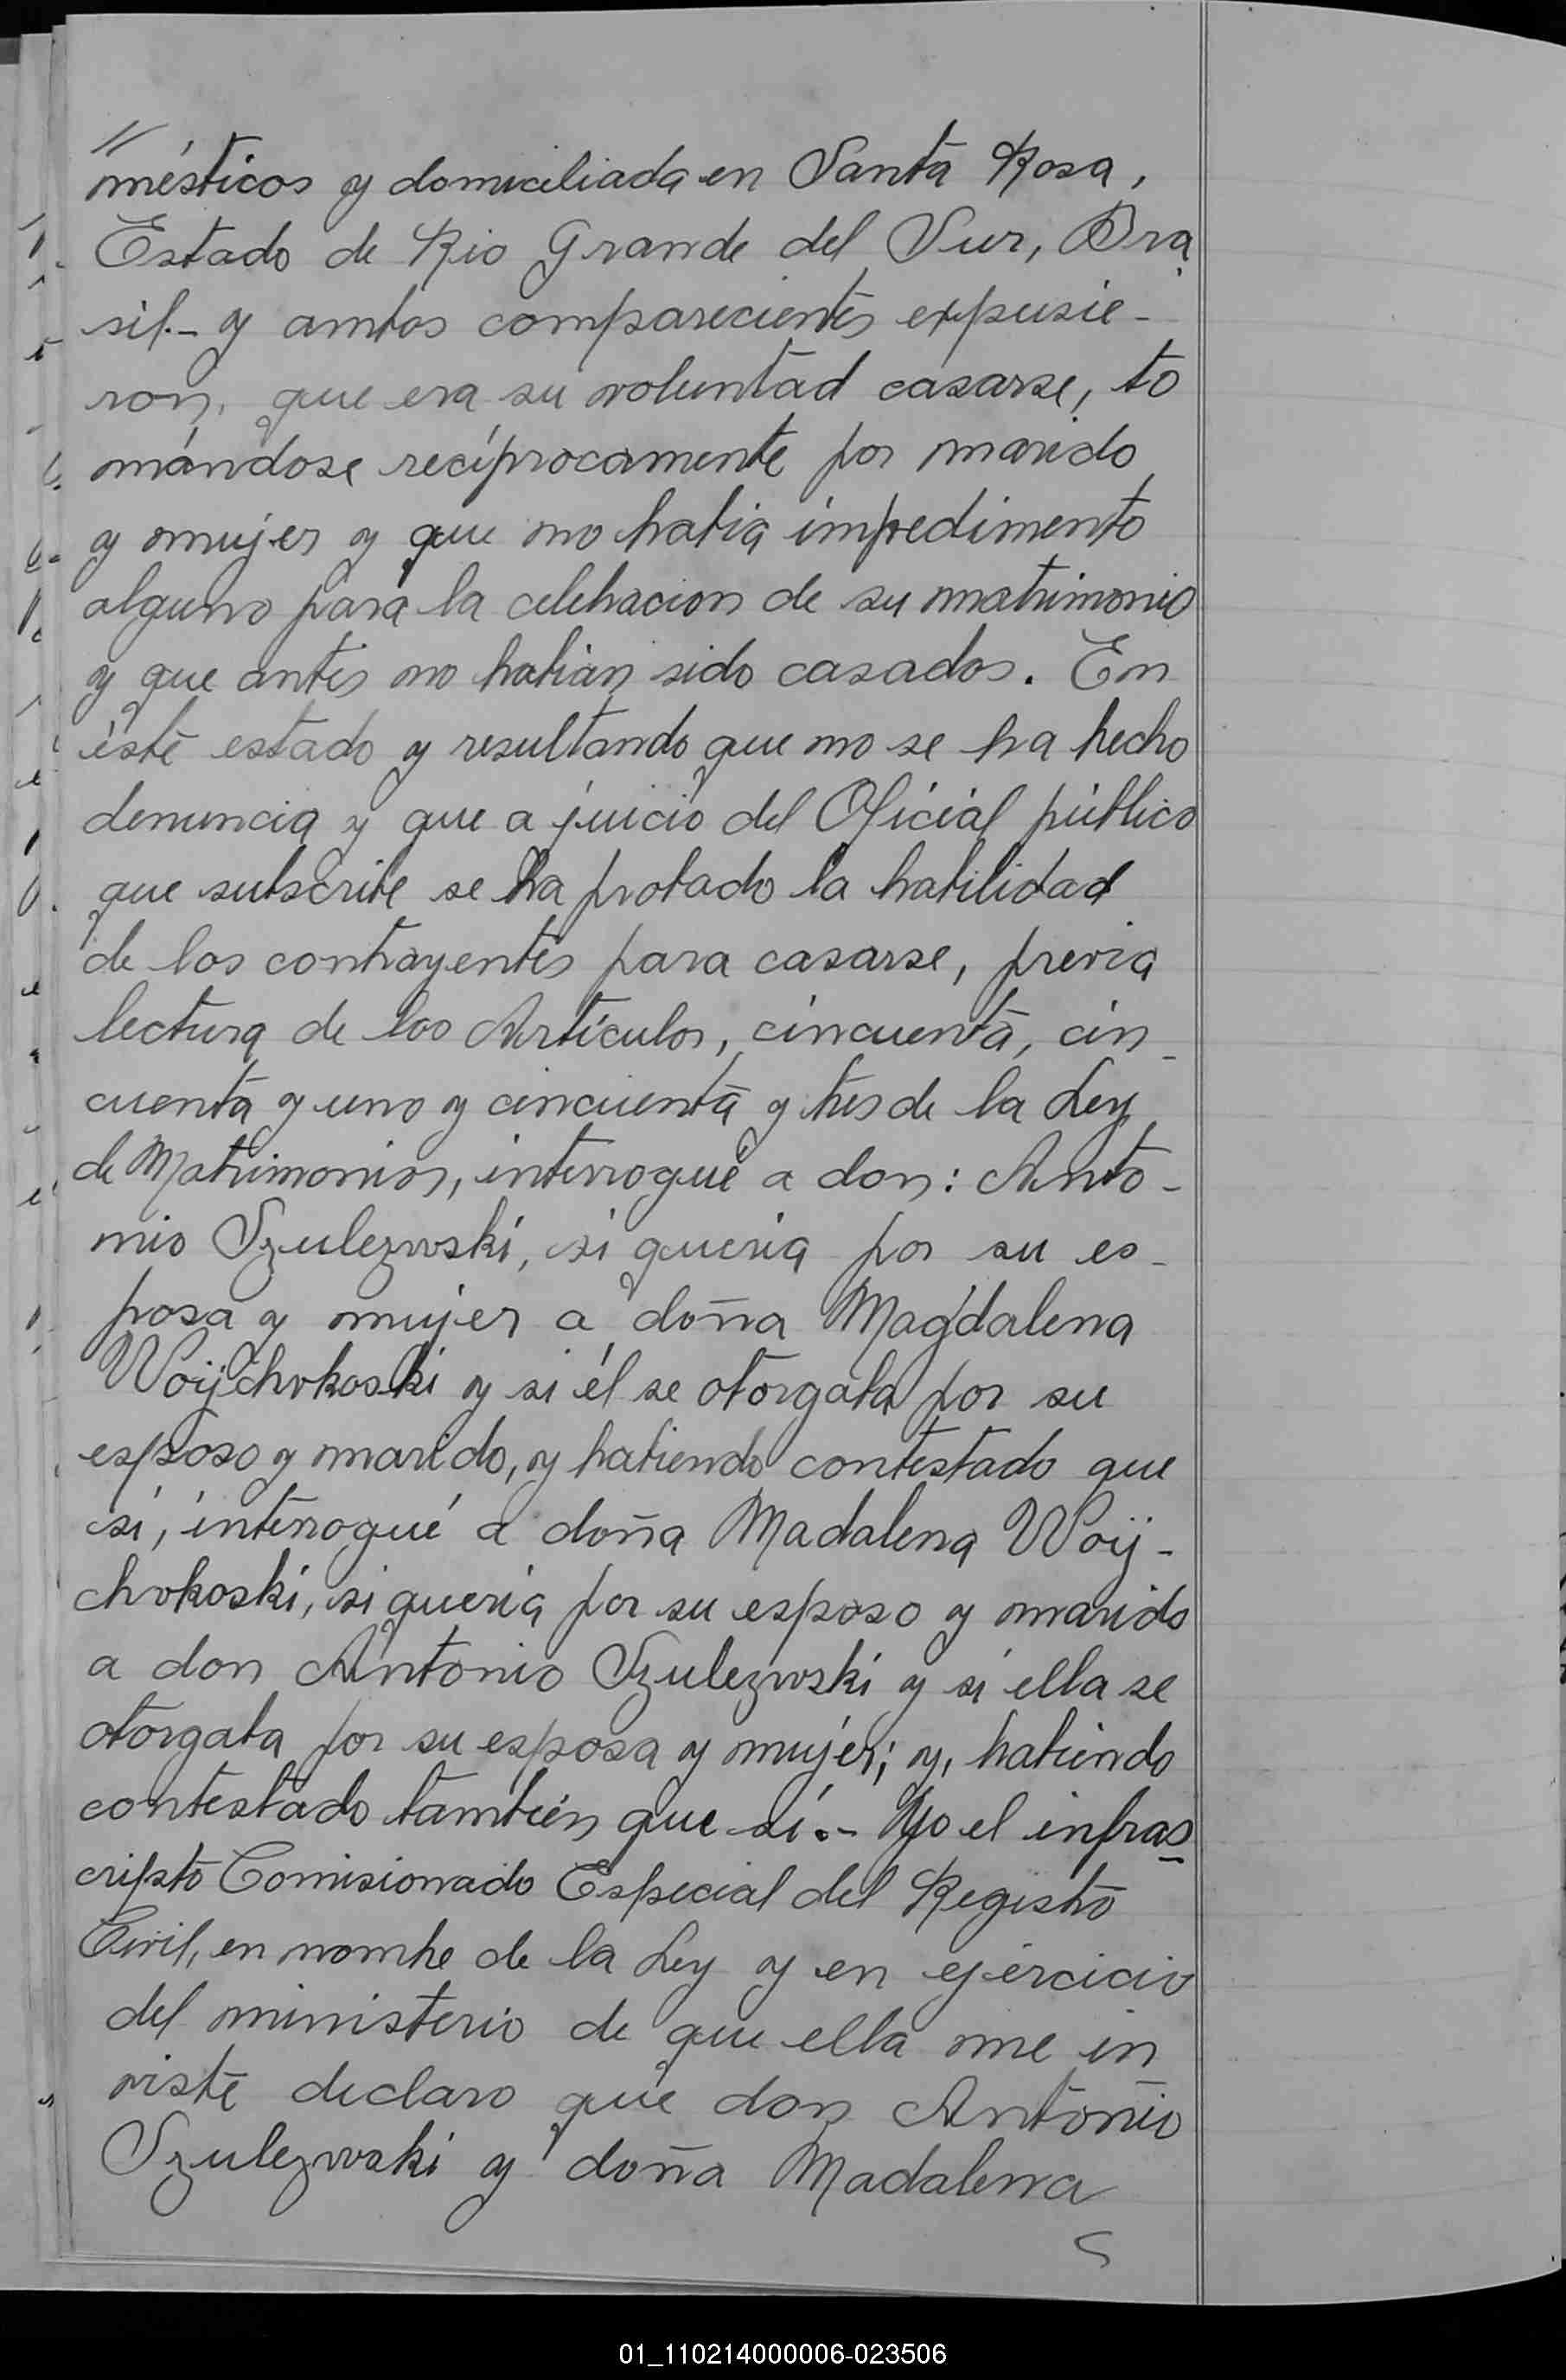 //
mésticos y domiciliada en Santa Rosa,
Estado de Rio Grande del Sur, Bra
sil.- y ambos comparecientes expusie-
ron, que era su voluntad casarse, to
mándose recíprocamente por marido
y mujer y que no habia impedimento
alguno para la celebracion de su matrimonio
y que antes no habian sido casados. En
éste estado y resultando que no se ha hecho
denuncia y que a juicio del Oficial público
que subscribe se ha probado la habilidad
de los contrayentes para casarse, previa
lectura de los Artículos, cincuenta, cin-
cuenta y uno y cincuenta y tres de la Ley
de Matrimonios, interrogué a don: Anto-
nio Szulezwski, si queria por su es-
posa y mujer a doña Magdalena
Woijchokoski y si él se otorgaba por su
esposo y marido, y habiendo contestado que
sí, interrogué a doña Madalena Woij-
chokoski, si queria por su esposo y marido
a don Antonio Szulezwski y si ella se
otorgaba por su esposa y mujer; y, habiendo
contestado también que sí.- Yo el infras
cripto Comisionado Especial del Registro
Civil, en nombre de la Ley y en ejercicio
del ministerio de que ella me in
viste declaro que don Antonio
Szulezwski y doña Madalena
01_110214000006-023506